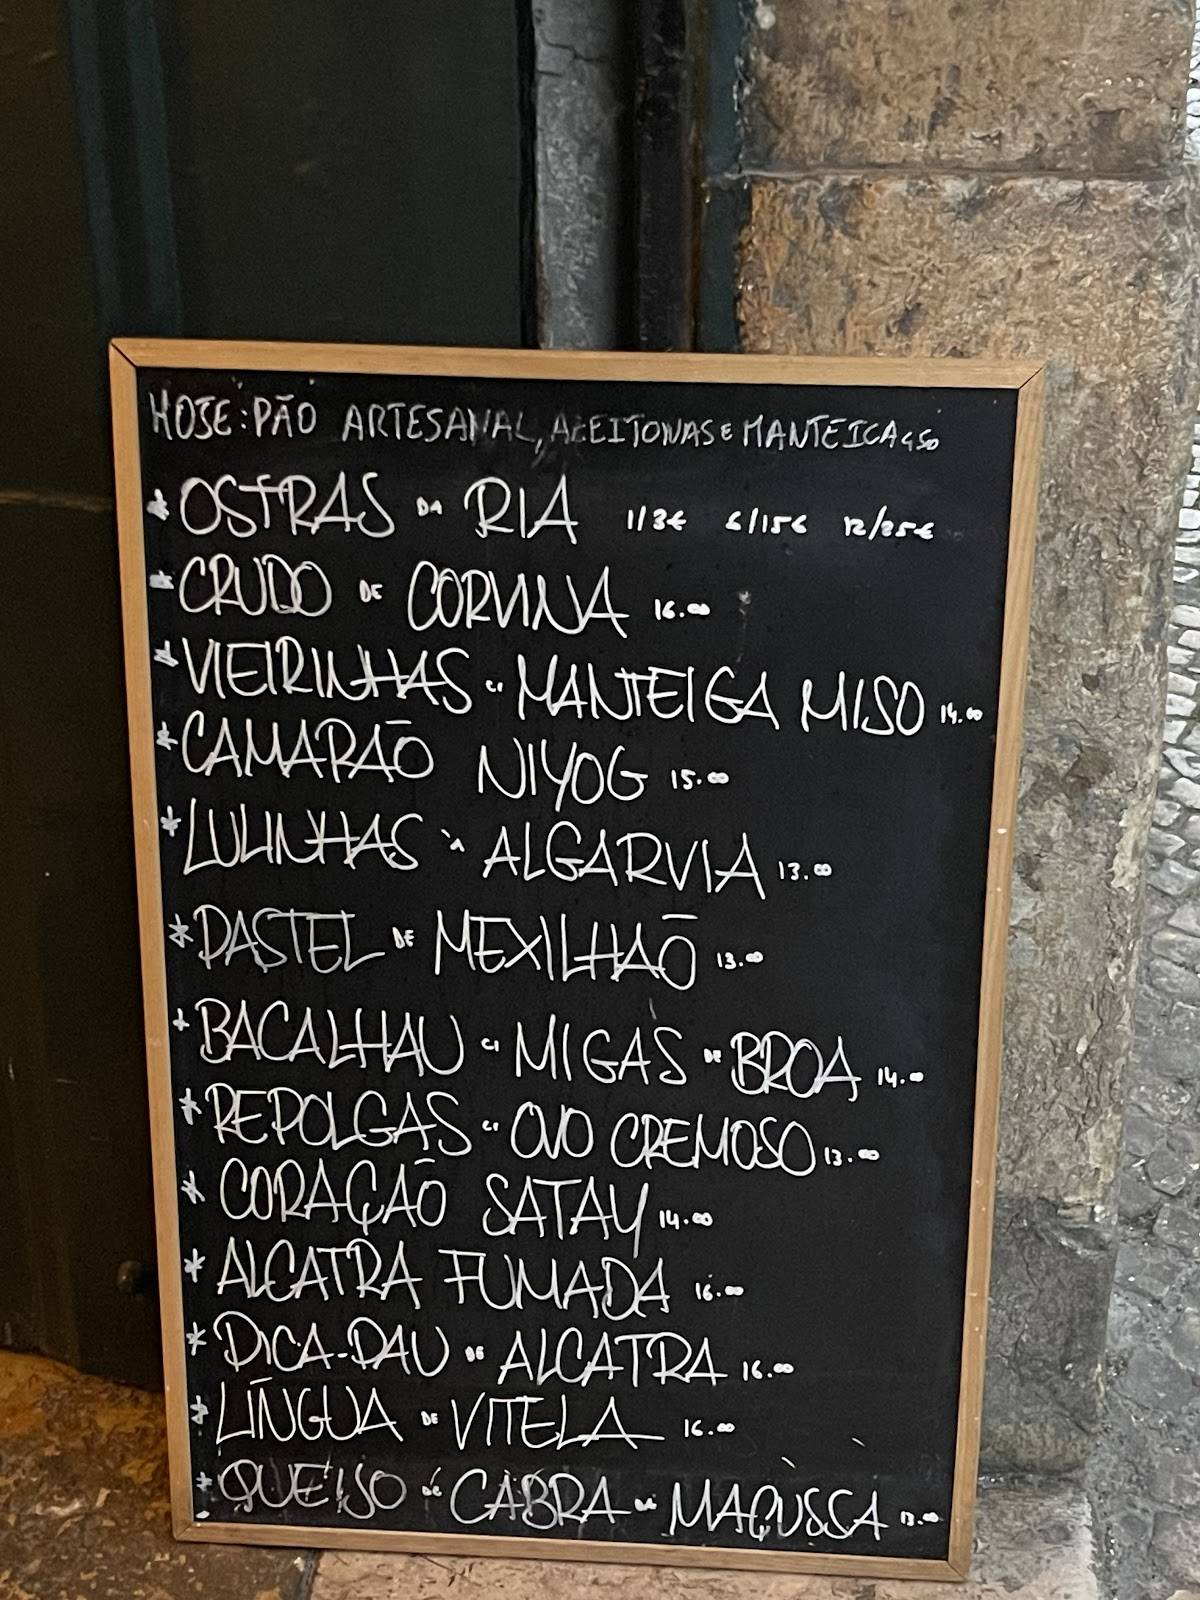 HOJE: PÃO ARTESANAL, AZEITONAS E MANTEIGA 4,50
* OSTRAS DA RIA 1/3€ 6/15€ 12/25€
* CRUDO DE CORVINA 16.00
* VIEIRINHAS C/ MANTEIGA MISO 14.00
* CAMARÃO NIYOG 15.00
* LULINHAS À ALGARVIA 13.00
* PASTEL DE MEXILHAÕ 13.00
* BACALHAU C/ MIGAS DE BROA 14.00
* REPOLGAS C/ OVO CREMOSO 13.00
* CORAÇÃO SATAY 14.00
* ALCATRA FUMADA 16.00
* PICA-PAU DE ALCATRA 16.00
* LÍNGUA DE VITELA 16.00
* QUEIJO DE CABRA DE MAÇUSSA 13.00